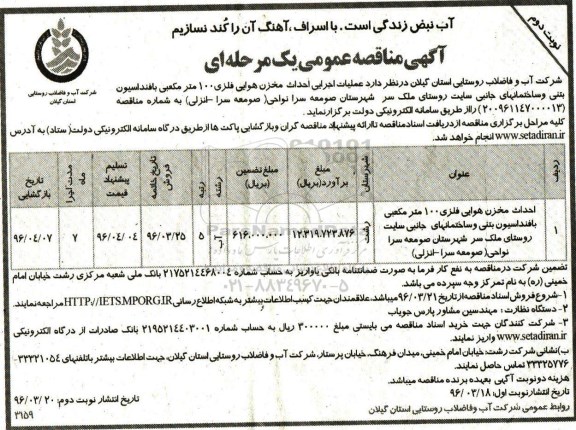 نوبت دوم
آب نبض زندگی است. با اسراف، آهنگ آن را کُند نسازیم
آگهی مناقصه عمومی یک مرحله‌ای
شرکت آب و فاضلاب روستایی
استان گیلان
شرکت آب و فاضلاب روستایی استان گیلان درنظر دارد عملیات اجرایی احداث مخزن هوایی فلزی ۱۰۰ متر مکعبی بافنداسیون
بتنی وساختمانهای جانبی سایت روستای ملک سر شهرستان صومعه سرا نواحی( صومعه سرا -انزلی) به شماره مناقصه
(۲۰۰۹۶۱۱۴۷۰۰۰۰۱۳) رااز طریق سامانه الکترونیکی دولت برگزارنماید.
کلیه مراحل برگزاری مناقصه ازدریافت اسنادمناقصه تاارائه پیشنهاد مناقصه گران وبازگشایی پاکت ها ازطریق درگاه سامانه الکترونیکی دولت( ستاد) به آدرس
www.setadiran.ir انجام خواهد شد.
ردیف عنوان شهرستان مبلغ برآورد(ریال) مبلغ تضمین (ریال) رشته رتبه تاریخ خاتمه فروش تسلیم پیشنهاد قیمت مدت اجرا ماه تاریخ بازگشایی
۱ احداث مخزن هوایی فلزی ۱۰۰ متر مکعبی بافنداسیون بتنی وساختمانهای جانبی سایت روستای ملک سر شهرستان صومعه سرا نواحی( صومعه سرا -انزلی) رشت ۱۲.۳۱۹.۷۲۳.۸۷۶ ۶۱۶.۰۰۰.۰۰۰ آب ۵ ۹۶/۰۳/۲۵ ۹۶/۰۴/۰۴ ۷ ۹۶/۰۴/۰۷
۰۲۱-۸۸۳۴۹۶۷۰-۵
تضمین شرکت درمناقصه به نفع کار فرما به صورت ضمانتنامه بانکی یاواریز به حساب شماره ۲۱۷۵۲۱۴۴۶۸۰۰۴ بانک ملی شعبه مرکزی رشت خیابان امام
خمینی (ره) به نام تمرکز وجه سپرده می باشد.
۱-شروع فروش اسنادمناقصه ازتاریخ ۹۶/۰۳/۲۱ میباشد.علاقمندان جهت کسب اطلاعات بیشتر به شبکه اطلاع رسانی HTTP//IETS.MPORG.IR مراجعه نمایند.
۲- دستگاه نظارت : مهندسین مشاور پارس جویاب
۳- شرکت کنندگان جهت خرید اسناد مناقصه می بایستی مبلغ ۳۰۰۰۰۰ ریال به حساب شماره ۲۱۹۵۲۱۴۴۰۳۰۰۱ بانک صادرات از درگاه الکترونیکی
www.setadiran.ir واریز نمایند.
ب)نشانی شرکت: رشت، خیابان امام خمینی، میدان فرهنگ، خیابان پرستار، شرکت آب و فاضلاب روستایی استان گیلان، جهت اطلاعات بیشتر باتلفنهای ۳۳۳۲۱۰۵۴-
۳۳۳۲۵۷۷۶ تماس حاصل نمایند.
هزینه دونوبت آگهی بعهده برنده مناقصه میباشد.
تاریخ انتشارنوبت اول: ۹۶/۰۳/۱۸
تاریخ انتشار نوبت دوم: ۹۶/۰۳/۲۰
روابط عمومی شرکت آب وفاضلاب روستایی استان گیلان
۳۱۵۹